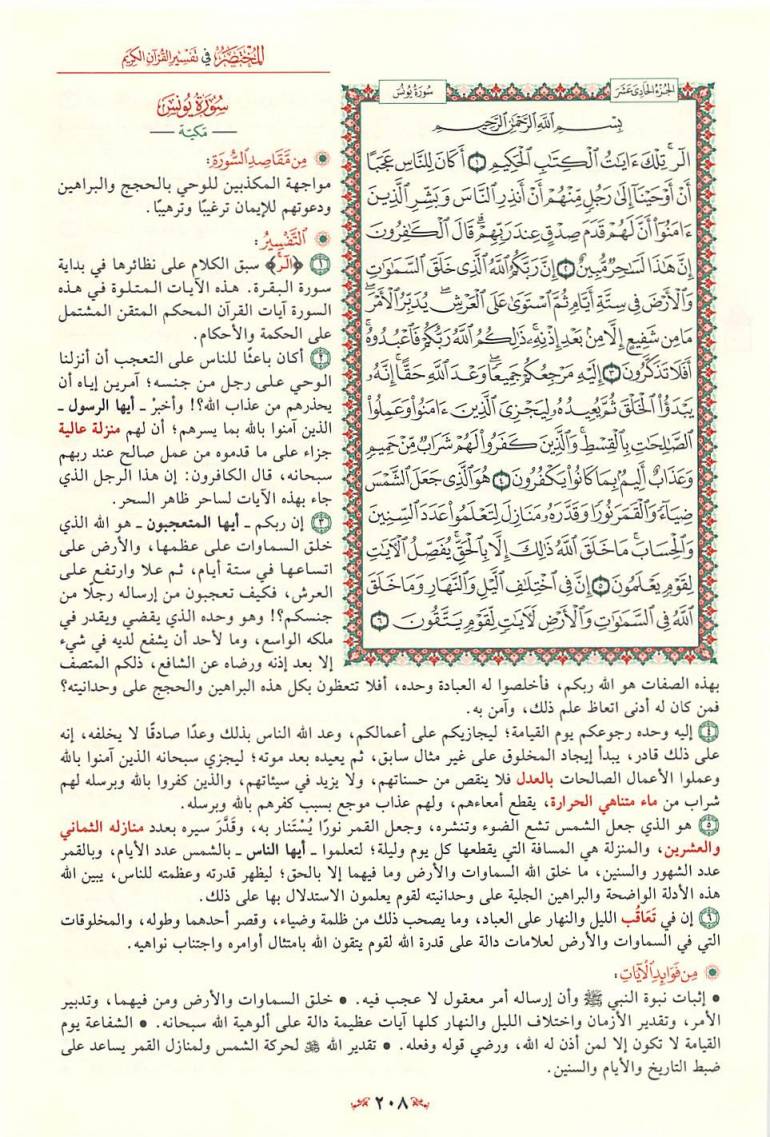 المختصر في تفسير القرآن الكريم
الجزء الحادي عشر
سورة يونس
بِسْمِ اللَّهِ الرَّحْمَٰنِ الرَّحِيمِ
الٓرۚ تِلۡكَ ءَايَٰتُ ٱلۡكِتَٰبِ ٱلۡحَكِيمِ ١ أَكَانَ لِلنَّاسِ عَجَبًا
أَنۡ أَوۡحَيۡنَآ إِلَىٰ رَجُلٖ مِّنۡهُمۡ أَنۡ أَنذِرِ ٱلنَّاسَ وَبَشِّرِ ٱلَّذِينَ
ءَامَنُوٓاْ أَنَّ لَهُمۡ قَدَمَ صِدۡقٍ عِندَ رَبِّهِمۡۗ قَالَ ٱلۡكَٰفِرُونَ
إِنَّ هَٰذَا لَسَٰحِرٞ مُّبِينٌ ٢ إِنَّ رَبَّكُمُ ٱللَّهُ ٱلَّذِي خَلَقَ ٱلسَّمَٰوَٰتِ
وَٱلۡأَرۡضَ فِي سِتَّةِ أَيَّامٖ ثُمَّ ٱسۡتَوَىٰ عَلَى ٱلۡعَرۡشِۖ يُدَبِّرُ ٱلۡأَمۡرَۖ
مَا مِن شَفِيعٍ إِلَّا مِنۢ بَعۡدِ إِذۡنِهِۦۚ ذَٰلِكُمُ ٱللَّهُ رَبُّكُمۡ فَٱعۡبُدُوهُۚ
أَفَلَا تَذَكَّرُونَ ٣ إِلَيۡهِ مَرۡجِعُكُمۡ جَمِيعٗاۖ وَعۡدَ ٱللَّهِ حَقًّاۚ إِنَّهُۥ
يَبۡدَؤُاْ ٱلۡخَلۡقَ ثُمَّ يُعِيدُهُۥ لِيَجۡزِيَ ٱلَّذِينَ ءَامَنُواْ وَعَمِلُواْ
ٱلصَّٰلِحَٰتِ بِٱلۡقِسۡطِۚ وَٱلَّذِينَ كَفَرُواْ لَهُمۡ شَرَابٞ مِّنۡ حَمِيمٖ
وَعَذَابٌ أَلِيمُۢ بِمَا كَانُواْ يَكۡفُرُونَ ٤ هُوَ ٱلَّذِي جَعَلَ ٱلشَّمۡسَ
ضِيَآءٗ وَٱلۡقَمَرَ نُورٗا وَقَدَّرَهُۥ مَنَازِلَ لِتَعۡلَمُواْ عَدَدَ ٱلسِّنِينَ
وَٱلۡحِسَابَۚ مَا خَلَقَ ٱللَّهُ ذَٰلِكَ إِلَّا بِٱلۡحَقِّۚ يُفَصِّلُ ٱلۡأٓيَٰتِ
لِقَوۡمٖ يَعۡلَمُونَ ٥ إِنَّ فِي ٱخۡتِلَٰفِ ٱلَّيۡلِ وَٱلنَّهَارِ وَمَا خَلَقَ
ٱللَّهُ فِي ٱلسَّمَٰوَٰتِ وَٱلۡأَرۡضِ لَأٓيَٰتٖ لِّقَوۡمٖ يَتَّقُونَ ٦
سورة يونس
— مكية —
من مقاصد السورة:
مواجهة المكذبين للوحي بالحجج والبراهين
ودعوتهم للإيمان ترغيبًا وترهيبًا.
التفسير:
١ ﴿الٓرۚ﴾ سبق الكلام على نظائرها في بداية
سورة البقرة. هذه الآيات المتلوة في هذه
السورة آيات القرآن المحكم المتقن المشتمل
على الحكمة والأحكام.
٢ أكان باعثًا للناس على التعجب أن أنزلنا
الوحي على رجل من جنسه؛ آمرين إياه أن
يحذرهم من عذاب الله؟! وأخبرْ ـ أيها الرسول ـ
الذين آمنوا بالله بما يسرهم؛ أن لهم منزلة عالية
جزاء على ما قدموه من عمل صالح عند ربهم
سبحانه، قال الكافرون: إن هذا الرجل الذي
جاء بهذه الآيات لساحر ظاهر السحر.
٣ إن ربكم ـ أيها المتعجبون ـ هو الله الذي
خلق السماوات على عظمها، والأرض على
اتساعها في ستة أيام، ثم علا وارتفع على
العرش، فكيف تعجبون من إرساله رجلًا من
جنسكم؟! وهو وحده الذي يقضي ويقدر في
ملكه الواسع، وما لأحد أن يشفع لديه في شيء
إلا بعد إذنه ورضاه عن الشافع، ذلكم المتصف
بهذه الصفات هو الله ربكم، فأخلصوا له العبادة وحده، أفلا تتعظون بكل هذه البراهين والحجج على وحدانيته؟
فمن كان له أدنى اتعاظ علم ذلك، وآمن به.
٤ إليه وحده رجوعكم يوم القيامة؛ ليجازيكم على أعمالكم، وعد الله الناس بذلك وعدًا صادقًا لا يخلفه، إنه
على ذلك قادر، يبدأ إيجاد المخلوق على غير مثال سابق، ثم يعيده بعد موته؛ ليجزي سبحانه الذين آمنوا بالله
وعملوا الأعمال الصالحات بالعدل فلا ينقص من حسناتهم، ولا يزيد في سيئاتهم، والذين كفروا بالله وبرسله لهم
شراب من ماء متناهي الحرارة، يقطع أمعاءهم، ولهم عذاب موجع بسبب كفرهم بالله وبرسله.
٥ هو الذي جعل الشمس تشع الضوء وتنشره، وجعل القمر نورًا يُسْتَنار به، وقَدَّرَ سيره بعدد منازله الثماني
والعشرين، والمنزلة هي المسافة التي يقطعها كل يوم وليلة؛ لتعلموا ـ أيها الناس ـ بالشمس عدد الأيام، وبالقمر
عدد الشهور والسنين، ما خلق الله السماوات والأرض وما فيهما إلا بالحق؛ ليظهر قدرته وعظمته للناس، يبين الله
هذه الأدلة الواضحة والبراهين الجلية على وحدانيته لقوم يعلمون الاستدلال بها على ذلك.
٦ إن في تَعَاقُب الليل والنهار على العباد، وما يصحب ذلك من ظلمة وضياء، وقصر أحدهما وطوله، والمخلوقات
التي في السماوات والأرض لعلامات دالة على قدرة الله لقوم يتقون الله بامتثال أوامره واجتناب نواهيه.
من فوائد الآيات:
• إثبات نبوة النبي ﷺ وأن إرساله أمر معقول لا عجب فيه. • خلق السماوات والأرض ومن فيهما، وتدبير
الأمر، وتقدير الأزمان واختلاف الليل والنهار كلها آيات عظيمة دالة على ألوهية الله سبحانه. • الشفاعة يوم
القيامة لا تكون إلا لمن أذن له الله، ورضي قوله وفعله. • تقدير الله ﷻ لحركة الشمس ولمنازل القمر يساعد على
ضبط التاريخ والأيام والسنين.
٢٠٨